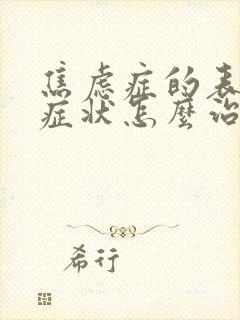 焦虑症的表
症状怎麼治
希行